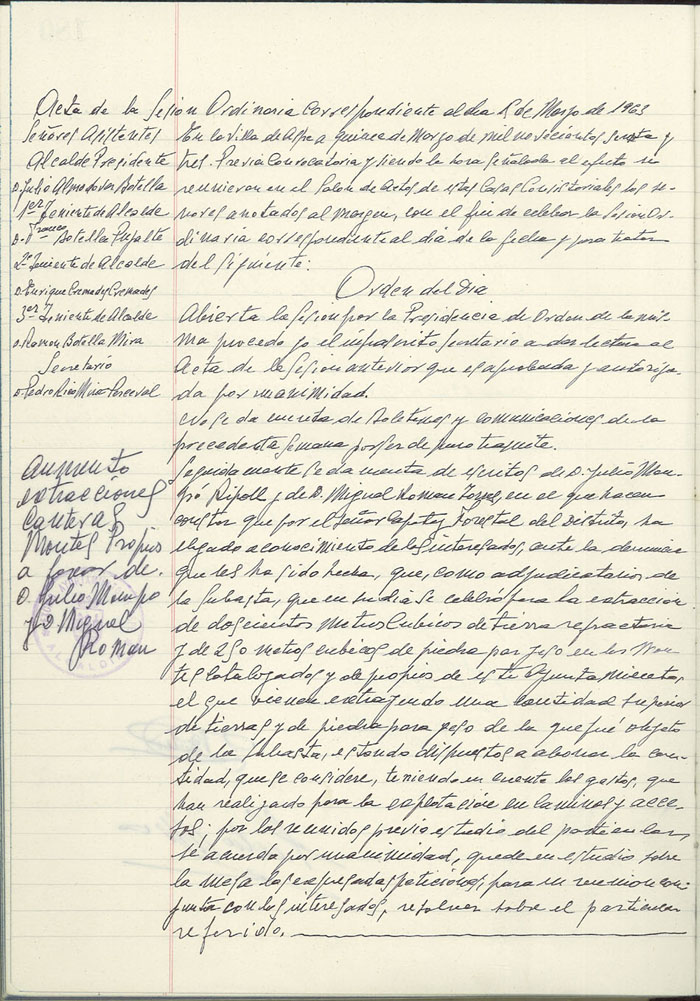 Acta de la Sesion Ordinaria correspondiente al dia 15 de Marzo de 1963
Señores Asistentes
Alcalde Presidente
D. Julio Almodovar Botella
1er Teniente de Alcalde
D. Franco Botella Pujalte
2º Teniente de Alcalde
D. Enrique Cremades Cremades
3er Teniente de Alcalde
D. Ramon Botella Mira
Secretario
D. Pedro Rico Mira-Perceval
En la villa de Aspe a quince de Marzo de mil novecientos sesenta y
tres. Previa Convocatoria y siendo la hora señalada al efecto se
reunieron en el Salon de Actos de estas Casas Consistoriales los se-
ñores anotados al margen, con el fin de celebrar la Sesion Or-
dinaria correspondiente al dia de la fecha y para tratar
del siguiente:
Orden del Dia
Abierta la Sesion por la Presidencia de Orden de la mis-
ma procedo yo el infrascrito Secretario a dar lectura al
Acta de la Sesion anterior que es aprobada y autoriza-
da por unanimidad.
se da cuenta de Boletines y comunicaciones de la
precedente Semana por ser de puro tramite.
Aumento
extracciones
canteras
Montes Propios
a favor de.
D. Julio Mompo
y D Miguel
Roman
Seguidamente se da cuenta de escritos de D. Julio Mom-
Ripoll y de D. Miguel Roman Torres, en el que hacen
constar que por el Señor Capataz Forestal del Distrito, ha
llegado a conocimiento de los interesados, ante la denuncia
que les ha sido hecha, que, como adjudicatarios de
la Subasta, que en su dia se celebró para la extracción
de doscientos Metros Cubicos de tierra refractaria
y de 250 metros cubicos de piedra para yeso en los Mon-
tes Catalogados y de propios de este Ayuntamiento
el que vienen extrayendo una cantidad superior
de tierras y de piedra para yeso de la que fué objeto
de la subasta, estando dispuestos a abonar la can-
tidad, que se considere, teniendo en cuenta los gastos, que
han realizado para la explotación en caminos y acce-
sos; por los reunidos previo estudio del particular,
se acuerda por unanimidad, quede en estudio sobre
la mesa las expresadas peticiones, para en reunion con-
junta con los interesados, resolver sobre el particular
referido.